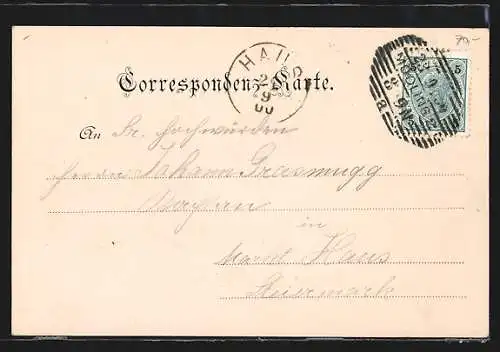 70,-
HAUS
Correspondenz-Karte.
5
An Sr. Hochwürden
Herrn Johann Grasmugg
Kaplan
in
Markt Haus
Steiermark